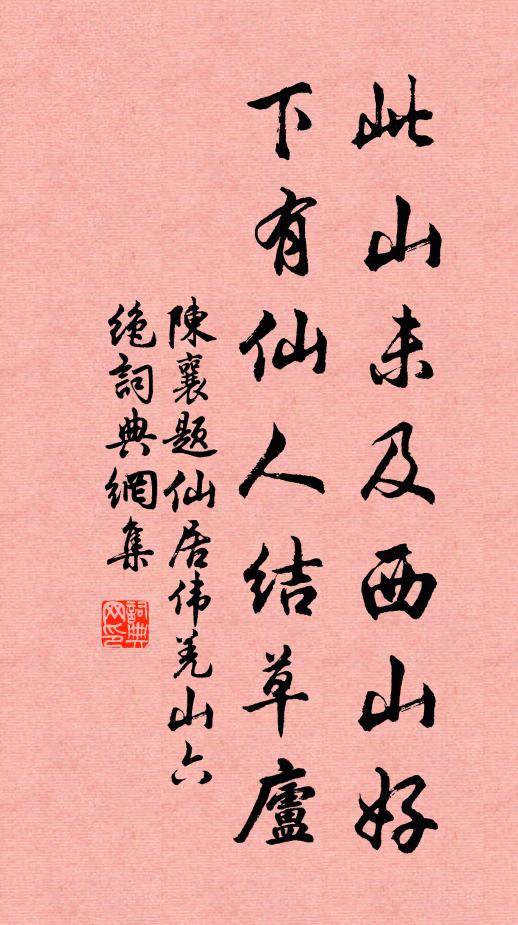 此山未及西山好
下有仙人结草廬
陳襄題仙居伟羌山六
绝詞典網集
詞典网印